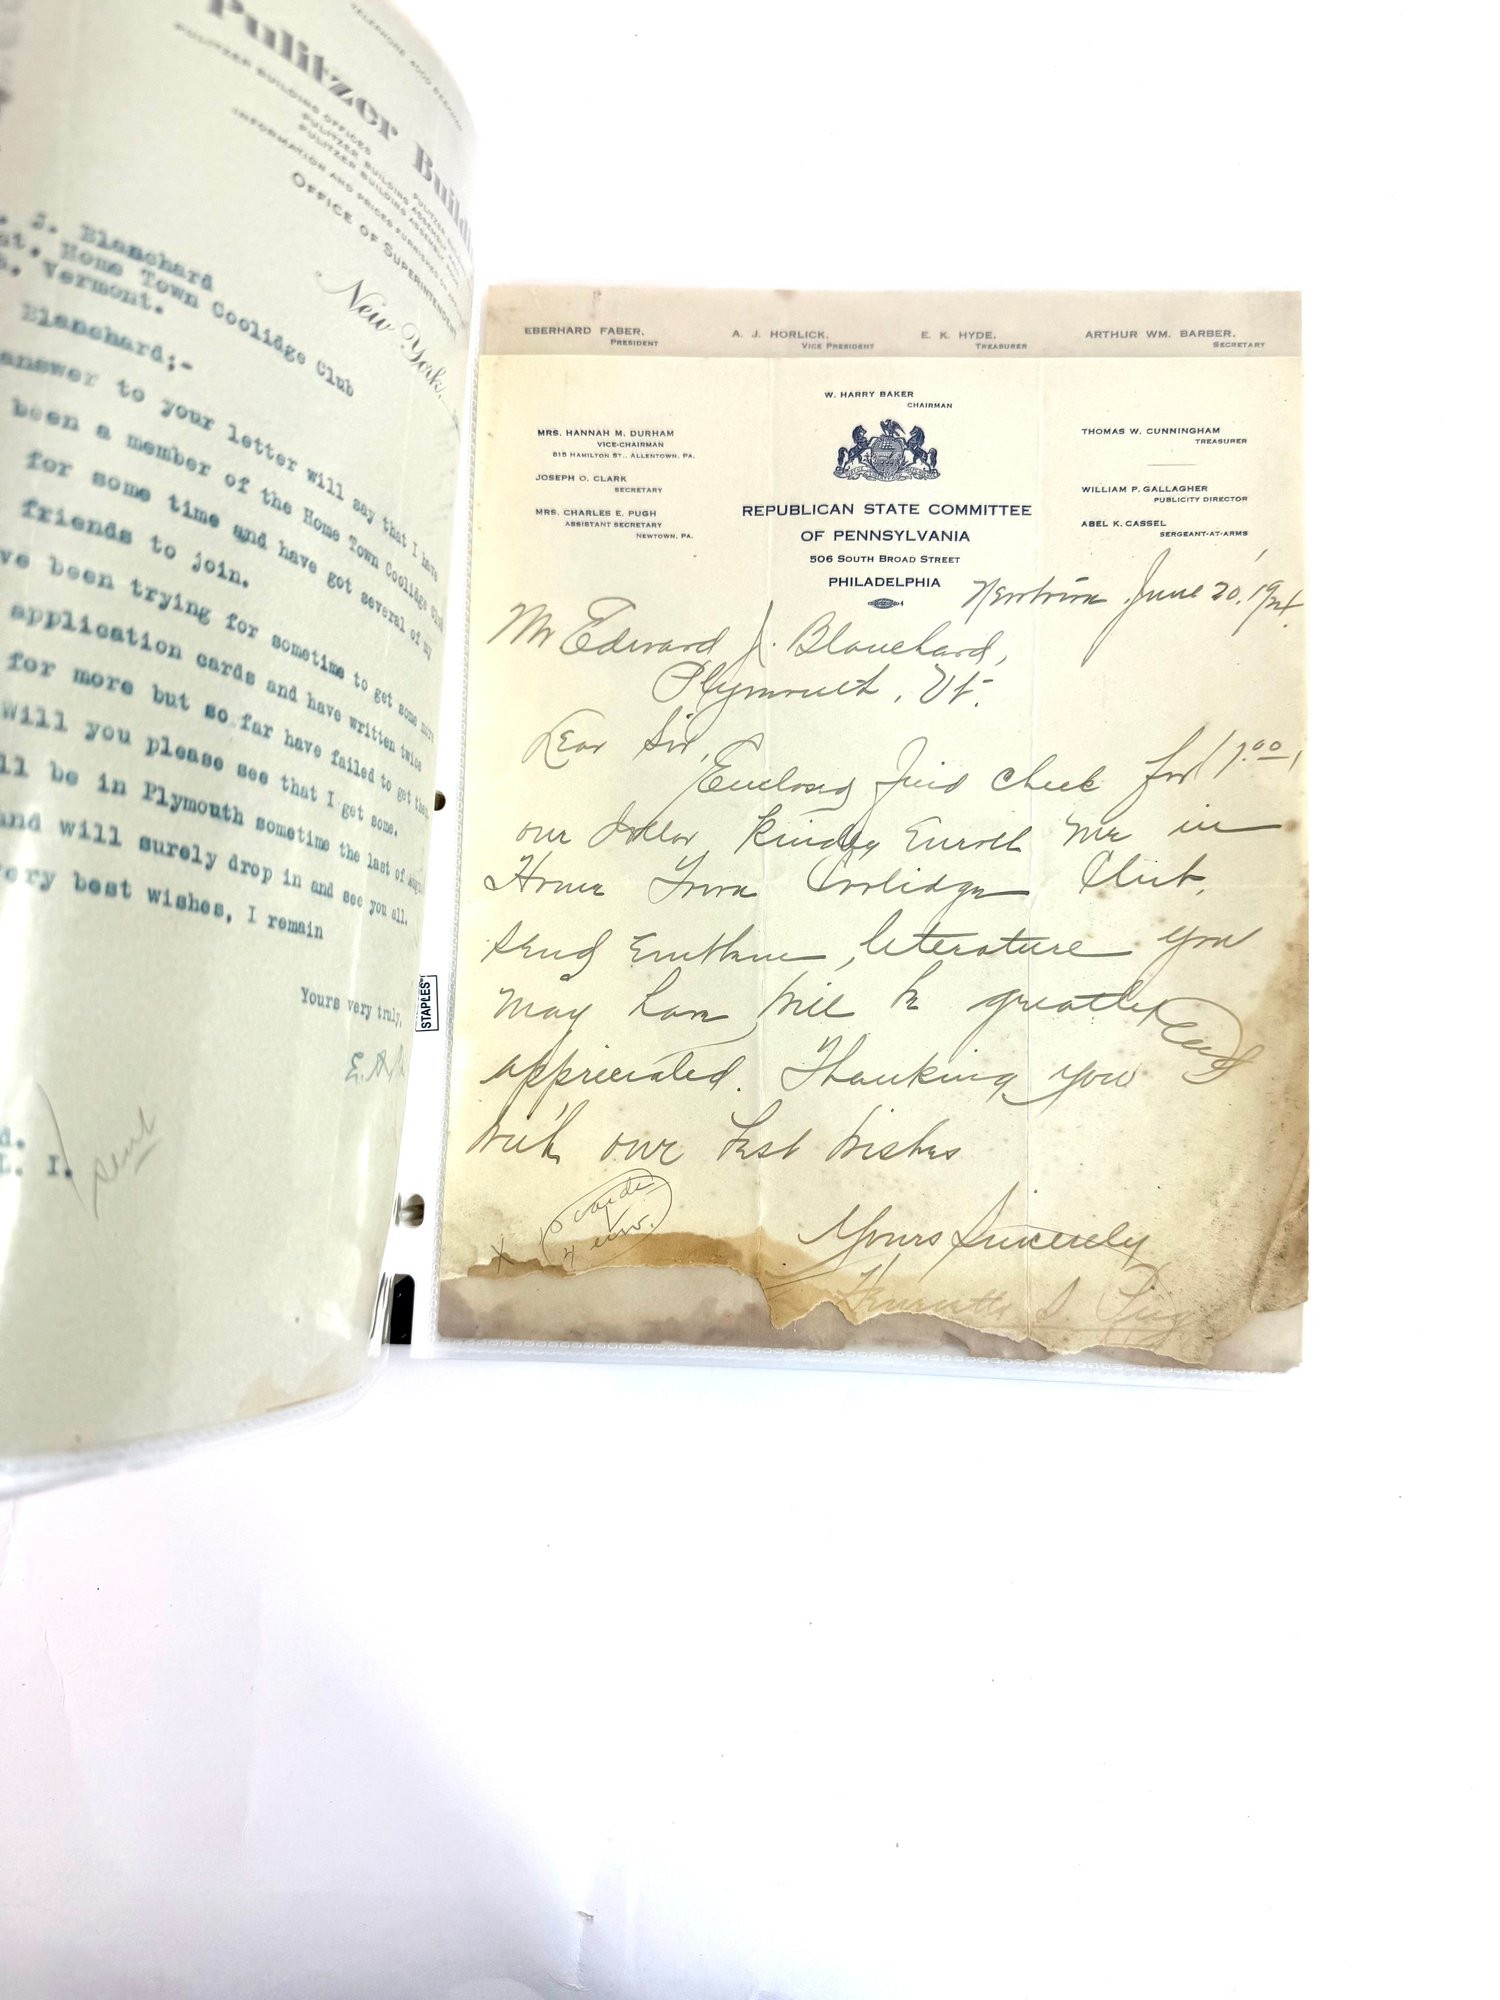 TELEPHONE 4000 BEEKMAN
Pulitzer Build
PULITZER BUILDING OFFICES
PULITZER BUILDING
PULITZER BUILDING ASSEMBLY
INFORMATION AND PRICES FURNISHED
OFFICE OF SUPERINTENDENT
New York,
. J. Blanchard
Home Town Coolidge Club
Vermont.
Blanchard;-
answer to your letter will say that I have
been a member of the Home Town Coolidge Club
for some time and have got several of my
friends to join.
ve been trying for sometime to get some more
application cards and have written twice
for more but so far have failed to get them.
Will you please see that I get some.
ll be in Plymouth sometime the last of
and will surely drop in and see you all.
ery best wishes, I remain
Yours very truly,
d.
L. I.
sent
STAPLES
EBERHARD FABER,
PRESIDENT
A. J. HORLICK,
VICE PRESIDENT
E. K. HYDE,
TREASURER
ARTHUR WM. BARBER,
SECRETARY
W. HARRY BAKER
CHAIRMAN
MRS. HANNAH M. DURHAM
VICE-CHAIRMAN
815 HAMILTON ST., ALLENTOWN, PA.
JOSEPH O. CLARK
SECRETARY
MRS. CHARLES E. PUGH
ASSISTANT SECRETARY
NEWTOWN, PA.
THOMAS W. CUNNINGHAM
TREASURER
WILLIAM P. GALLAGHER
PUBLICITY DIRECTOR
ABEL K. CASSEL
SERGEANT-AT-ARMS
REPUBLICAN STATE COMMITTEE
OF PENNSYLVANIA
506 SOUTH BROAD STREET
PHILADELPHIA
Newtown, June 20, 1924.
Mr Edward J. Blanchard,
Plymouth, Vt.
Dear Sir,
Enclosed find check for 1.00,
one dollar kindly Enroll me in
Home Town Coolidge Club.
Send Emblem, literature you
may have will be greatly
appreciated. Thanking you
With our best wishes
Card
Yours Sincerely
Henrietta S. Pugh
cards